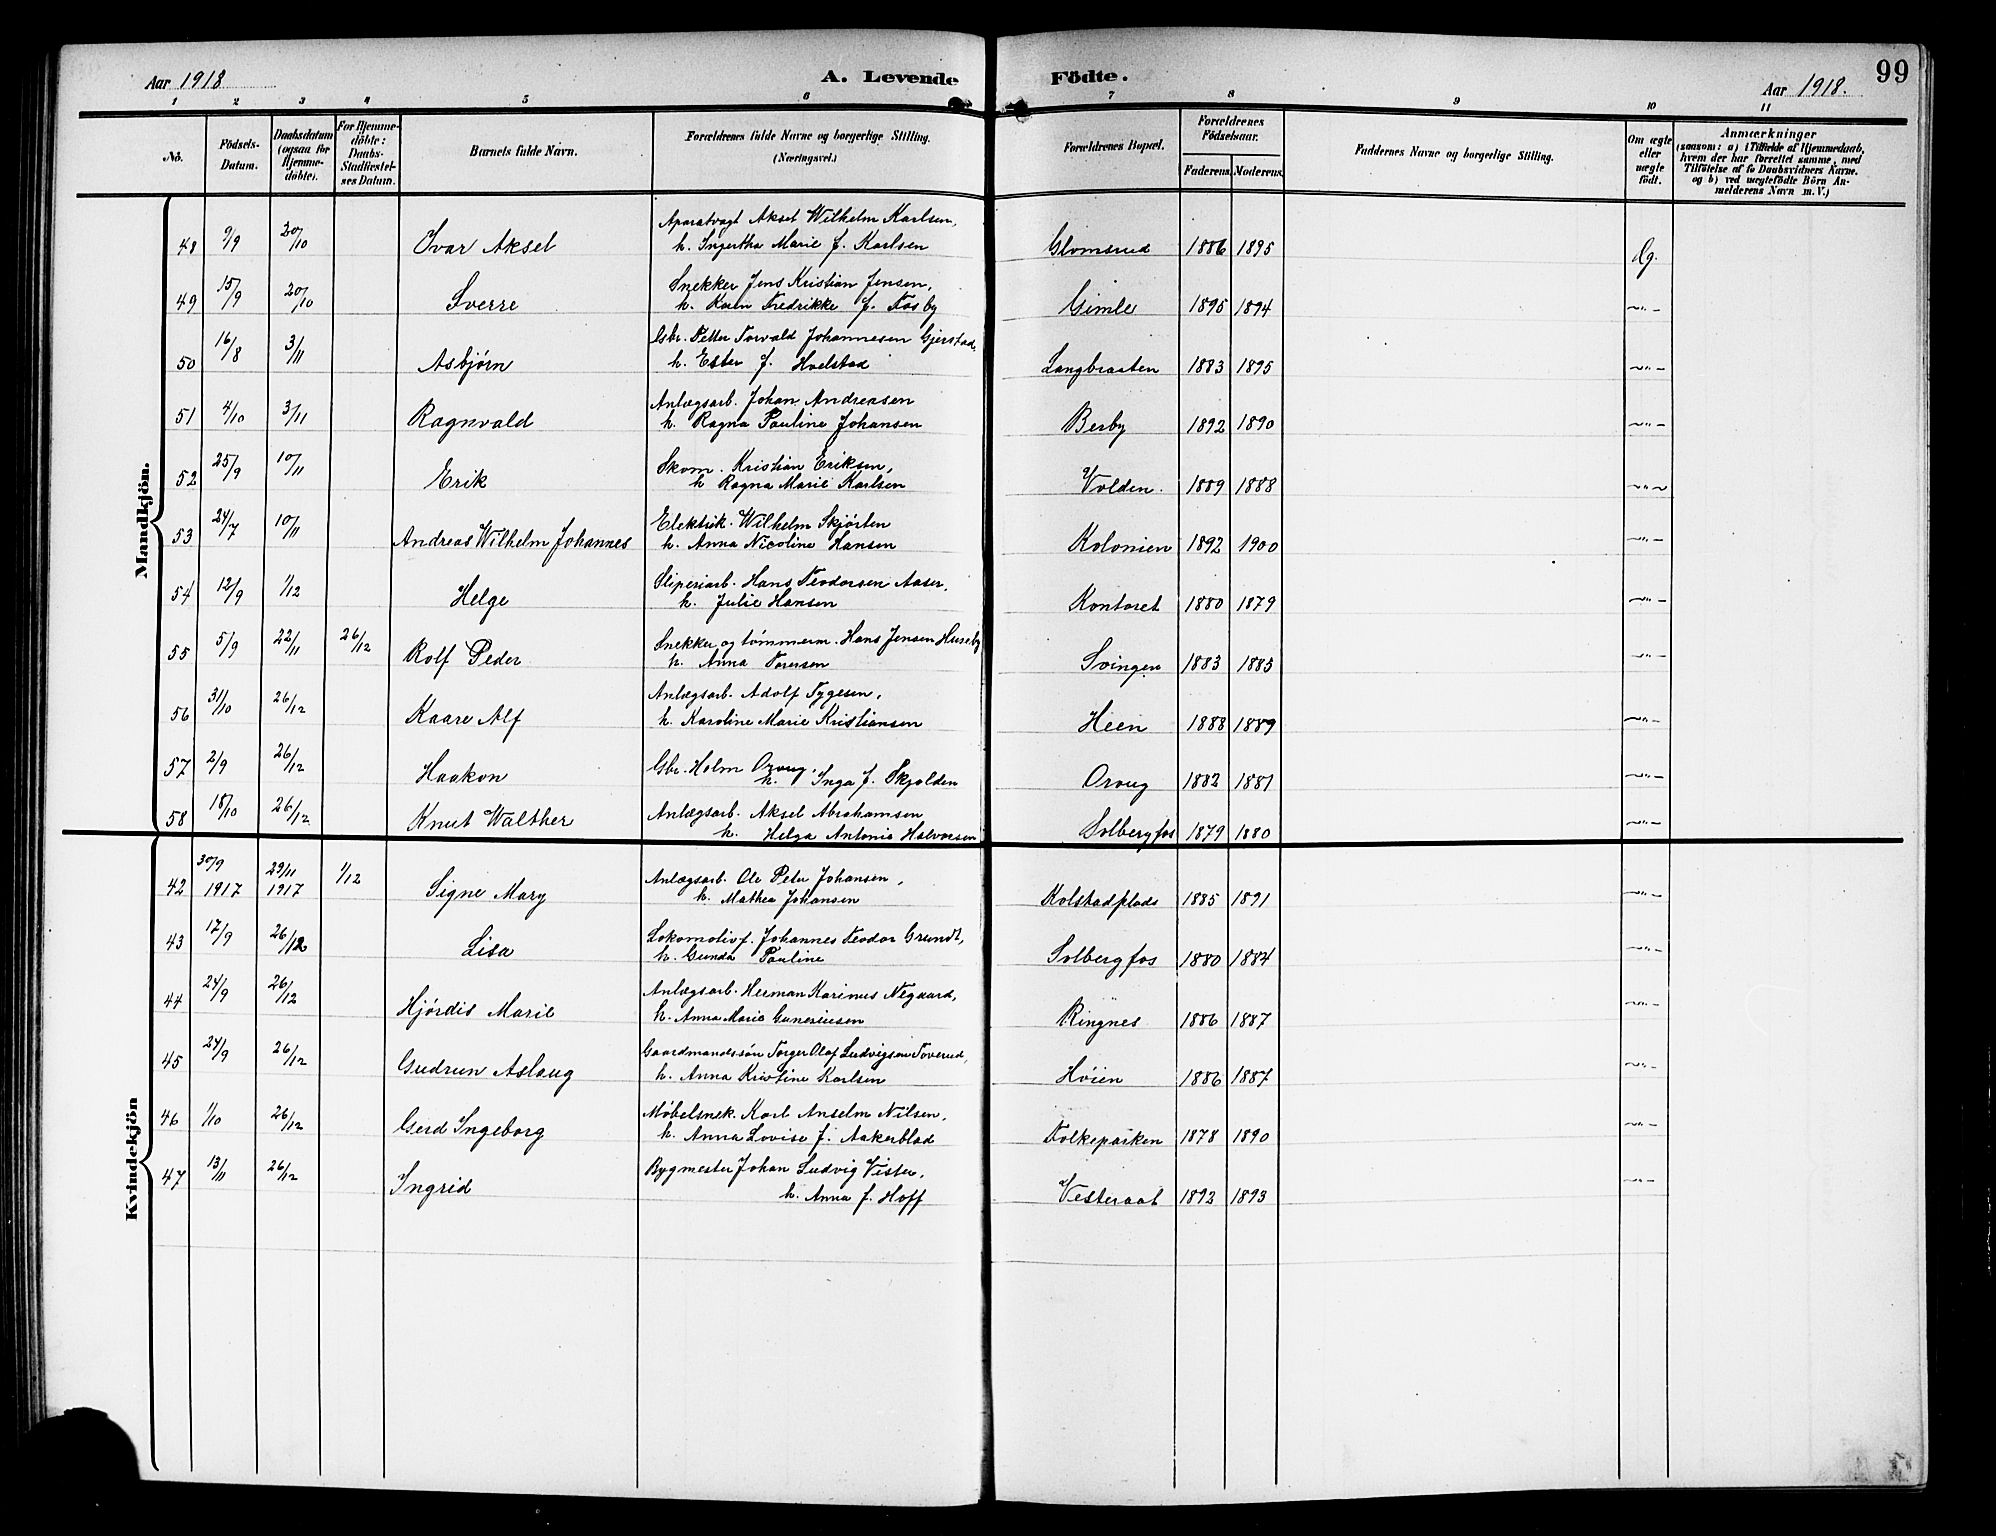 Aar 1918
A. Levende Födte.
99
Aar 1918.
1 2 3 4 5 6 7 8 9 10 11
No.
Födsels-Datum.
Daabsdatum (ogsaa for Hjemmedöbte).
For Hjemmedöbte: Daabs-Stadfæstelses Datum.
Barnets fulde Navn.
Forældrenes fulde Navne og borgerlige Stilling. (Næringsvei.)
Forældrenes Bopæl.
Forældrenes Födselsaar.
Faderens. Moderens.
Faddernes Navne og borgerlige Stilling.
Om ægte eller uægte födt.
Anmærkninger
(saasom: a) i Tilfælde af Hjemmedaab, hvem der har forrettet samme, med Tilföielse af to Daabsvidners Navne. og b) ved uægtefödte Börn Anmelderens Navn m. V.)
Mandkjön.
48 9/9 20/10 Ivar Aksel Aparatvagt Aksel Wilhelm Karlsen, h. Ingertha Marie f. Karlsen Glomsrud 1886 1895 Æg.
49 15/9 20/10 Sverre Snekker Jens Kristian Jensen, h. Karen Fredrikke f. Fosby Gimle 1895 1894 –"–
50 16/8 3/11 Asbjørn Gbr. Petter Torvald Johannesen Gjerstad, h. Ester f. Hvelstad Langbraaten 1883 1895 –"–
51 4/10 3/11 Ragnvald Anlægsarb. Johan Andreasen h. Ragna Pauline Johansen Berby 1892 1890 –"–
52 25/9 10/11 Erik Skom. Kristian Eriksen, h Ragna Marie Karlsen Volden. 1889 1888 –"–
53 24/7 10/11 Andreas Wilhelm Johannes Elektrik. Wilhelm Skjørten h. Anna Nicoline Hansen Kolonien 1892 1900 –"–
54 12/9 1/12 Helge Sliperiarb. Hans Teodorsen Aaser, h. Julie Hansen Kontoret 1880 1879 –"–
55 5/9 22/11 26/12 Rolf Peder Snekker og tømmerm. Hans Jensen Huseby h. Anna Torersen Svingen 1883 1885 –"–
56 31/10 26/12 Kaare Alf Anlægsarb. Adolf Tygesen, h. Karoline Marie Kristiansen Heen 1888 1889 –"–
57 2/9 26/12 Haakon Gbr. Holm Oraug, h. Inga f. Skjolden Oraug 1882 1881 –"–
58 18/10 26/12 Knut Walther Anlægsarb. Aksel Abrahamsen h. Helga Antonia Halvorsen Solbergfos 1879 1880 –"–
Kvindekjön
42 30/9 1917 29/11 1917 1/12 Signe Mary Anlægsarb. Ole Peter Johansen, h. Mathea Johansen Kolstadplads 1885 1891 –"–
43 17/9 26/12 Lisa Lokomotivf. Johannes Teodor Grundt, h. Gunda Pauline Solbergfos 1880 1884 –"–
44 24/9 26/12 Hjørdis Marie Anlægsarb. Herman Karinus Negaard, h. Anna Marie Guneriusen Ringnes 1886 1887 –"–
45 24/9 26/12 Gudrun Aslaug Gaardmandssøn Torger Olaf Ludvigsen Toverud, h. Anna Kristine Karlsen Høien 1886 1887 –"–
46 1/10 26/12 Gerd Ingeborg Møbelsnek. Karl Anselm Nilsen, h. Anna Lovise f. Aakerblad Folkeparken 1878 1890 –"–
47 13/11 26/12 Ingrid Bygmester Johan Ludvig Vister, h. Anna f. Hoff Vesteraat 1892 1893 –"–